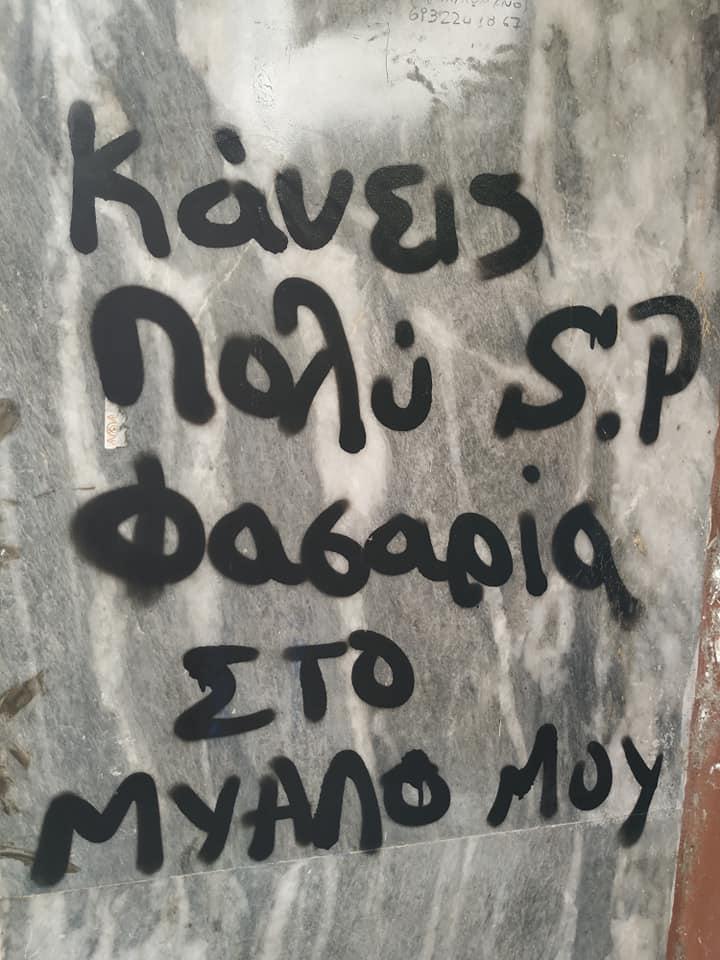 6932241867
Κάνεις
Πολύ S.P
Φασαρία
ΣΤΟ
ΜΥΑΛΟ ΜΟΥ